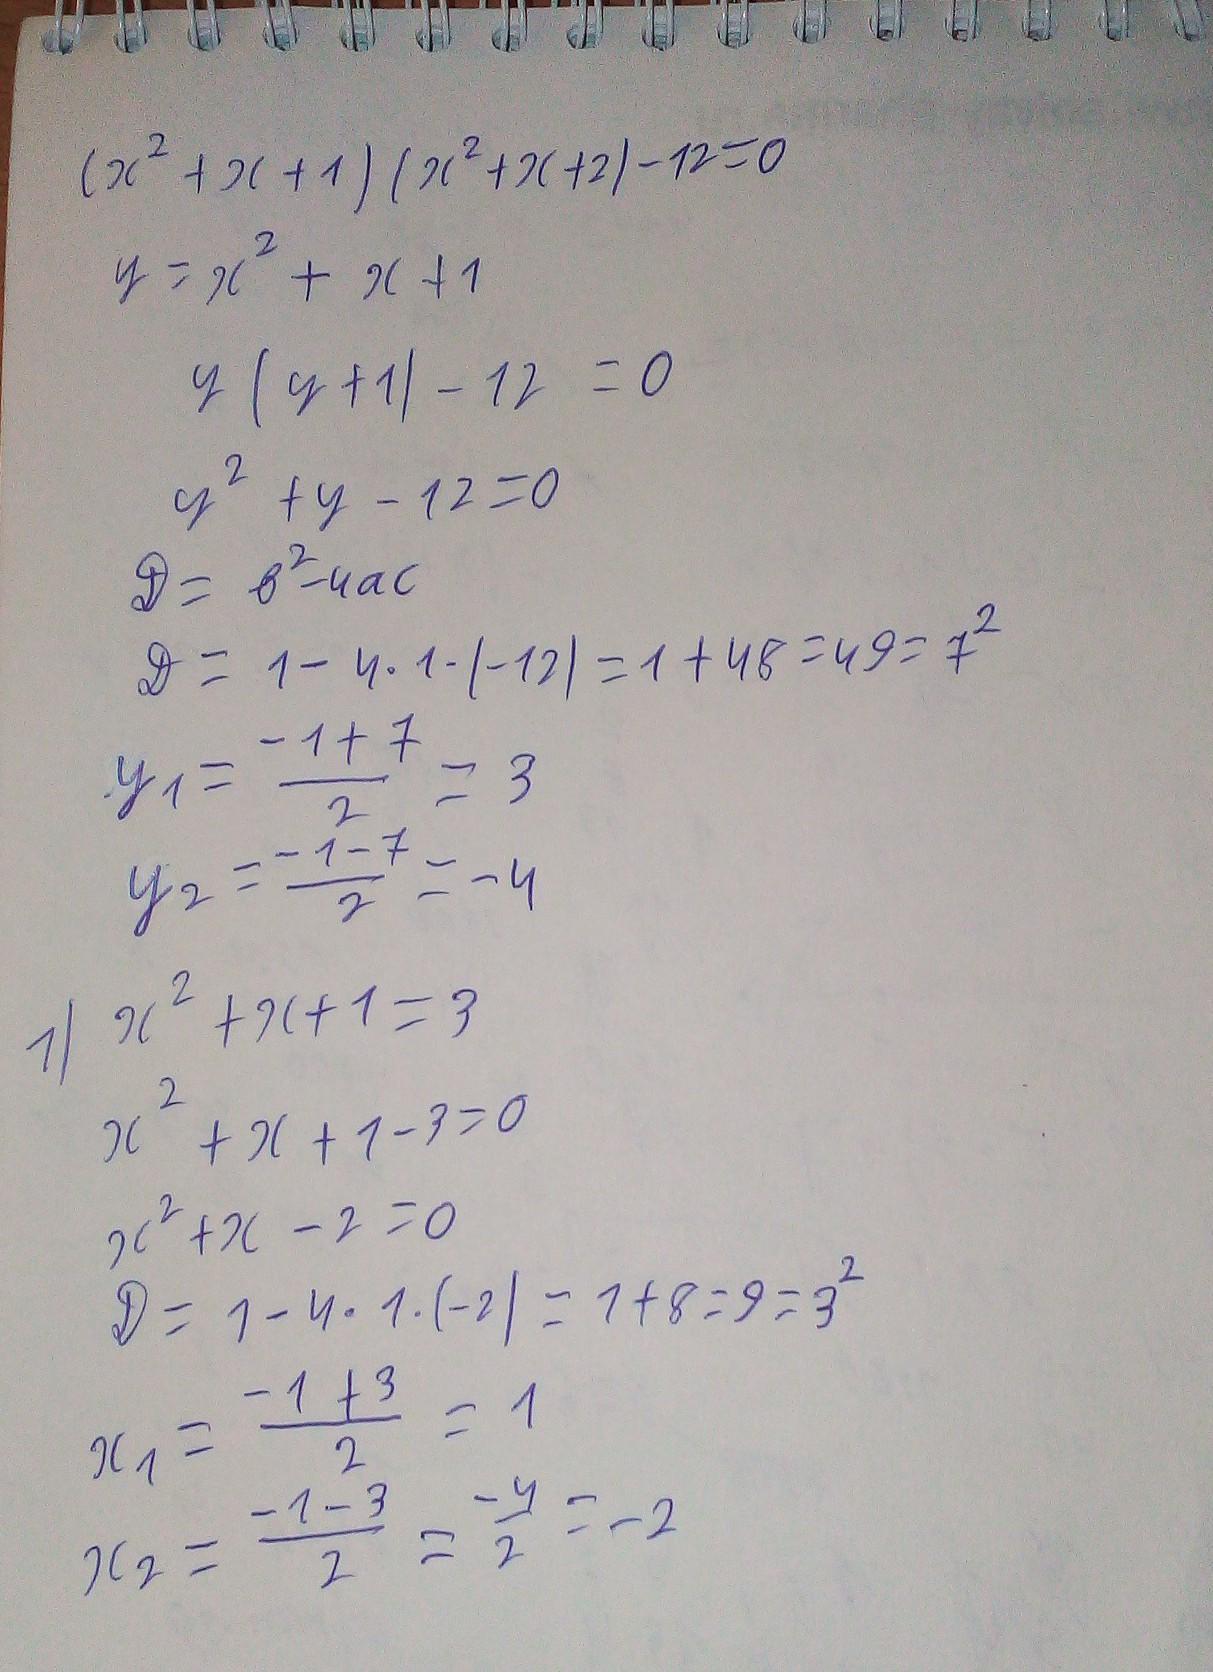 (x² + x + 1)(x² + x + 2) - 12 = 0
y = x² + x + 1
y(y + 1) - 12 = 0
y² + y - 12 = 0
D = в² - 4ac
D = 1 - 4·1·(-12) = 1 + 48 = 49 = 7²
y₁ = (-1 + 7)/2 = 3
y₂ = (-1 - 7)/2 = -4
1) x² + x + 1 = 3
x² + x + 1 - 3 = 0
x² + x - 2 = 0
D = 1 - 4·1·(-2) = 1 + 8 = 9 = 3²
x₁ = (-1 + 3)/2 = 1
x₂ = (-1 - 3)/2 = -4/2 = -2